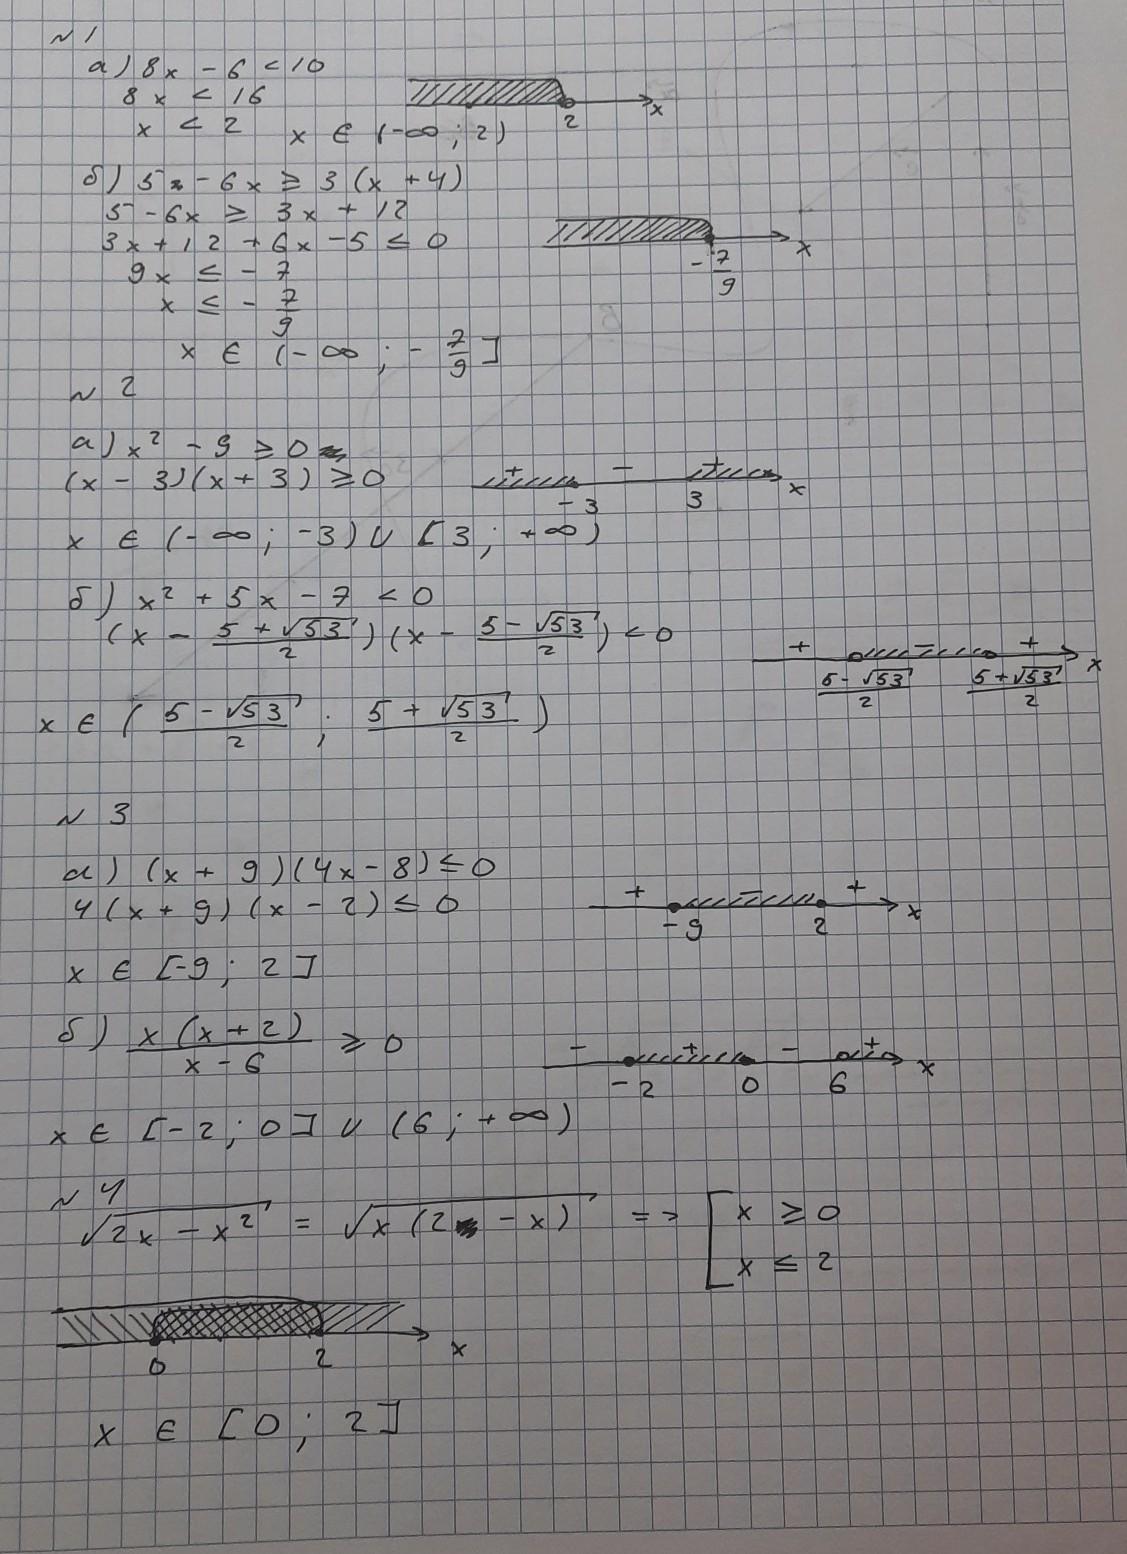 № 1
а) 8x - 6 < 10
8x < 16
x < 2   x ∈ (-∞ ; 2)
2 x
б) 5 - 6x ≥ 3 (x + 4)
5 - 6x ≥ 3x + 12
3x + 12 + 6x - 5 ≤ 0
9x ≤ - 7
x ≤ - 7/9
-7/9 x
x ∈ (-∞ ; - 7/9]
№ 2
а) x² - 9 ≥ 0
(x - 3)(x + 3) ≥ 0
+ - +
-3 3 x
x ∈ (-∞ ; -3) ∪ [3 ; +∞)
б) x² + 5x - 7 < 0
(x - (5 + √53)/2)(x - (5 - √53)/2) < 0
+ - +
(5 - √53)/2 (5 + √53)/2 x
x ∈ ((5 - √53)/2 ; (5 + √53)/2)
№ 3
а) (x + 9)(4x - 8) ≤ 0
4(x + 9)(x - 2) ≤ 0
+ - +
-9 2 x
x ∈ [-9 ; 2]
б) x(x + 2)/(x - 6) ≥ 0
- + - +
-2 0 6 x
x ∈ [-2 ; 0] ∪ (6 ; +∞)
№ 4
√(2x - x²) = √(x(2 - x)) => [x ≥ 0
x ≤ 2
0 2 x
x ∈ [0 ; 2]